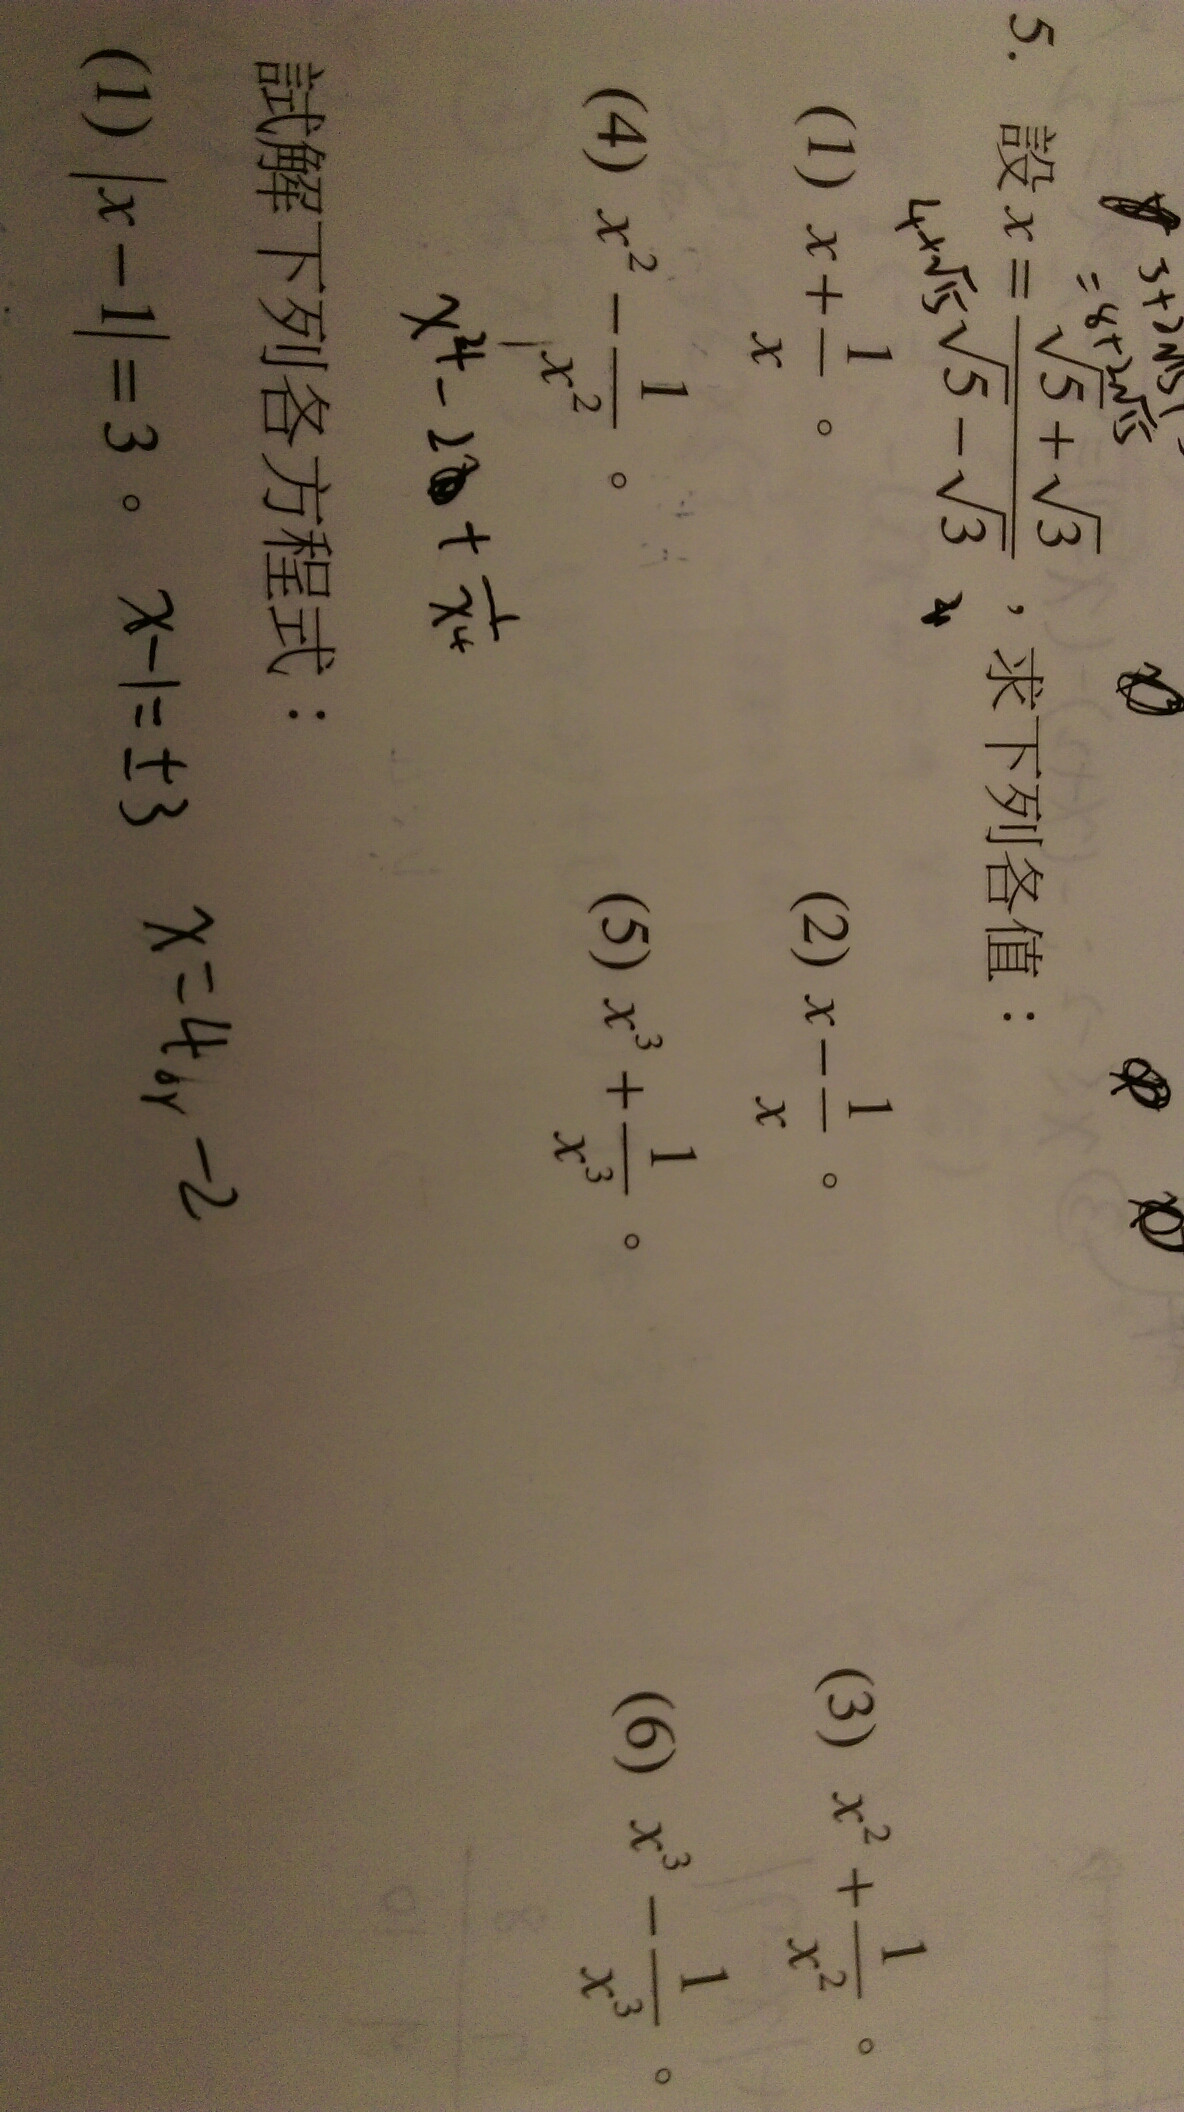 3+2√15
=8+2√15
5. 設 x = (√5+√3)/(√5−√3) ,求下列各值:
4+√15
(1) x + 1/x 。 (2) x − 1/x 。 (3) x² + 1/x² 。
(4) x² − 1/x² 。 (5) x³ + 1/x³ 。 (6) x³ − 1/x³ 。
x⁴ − 2 + 1/x⁴
試解下列各方程式:
(1) |x − 1| = 3 。 x−1=±3 x=4 or −2